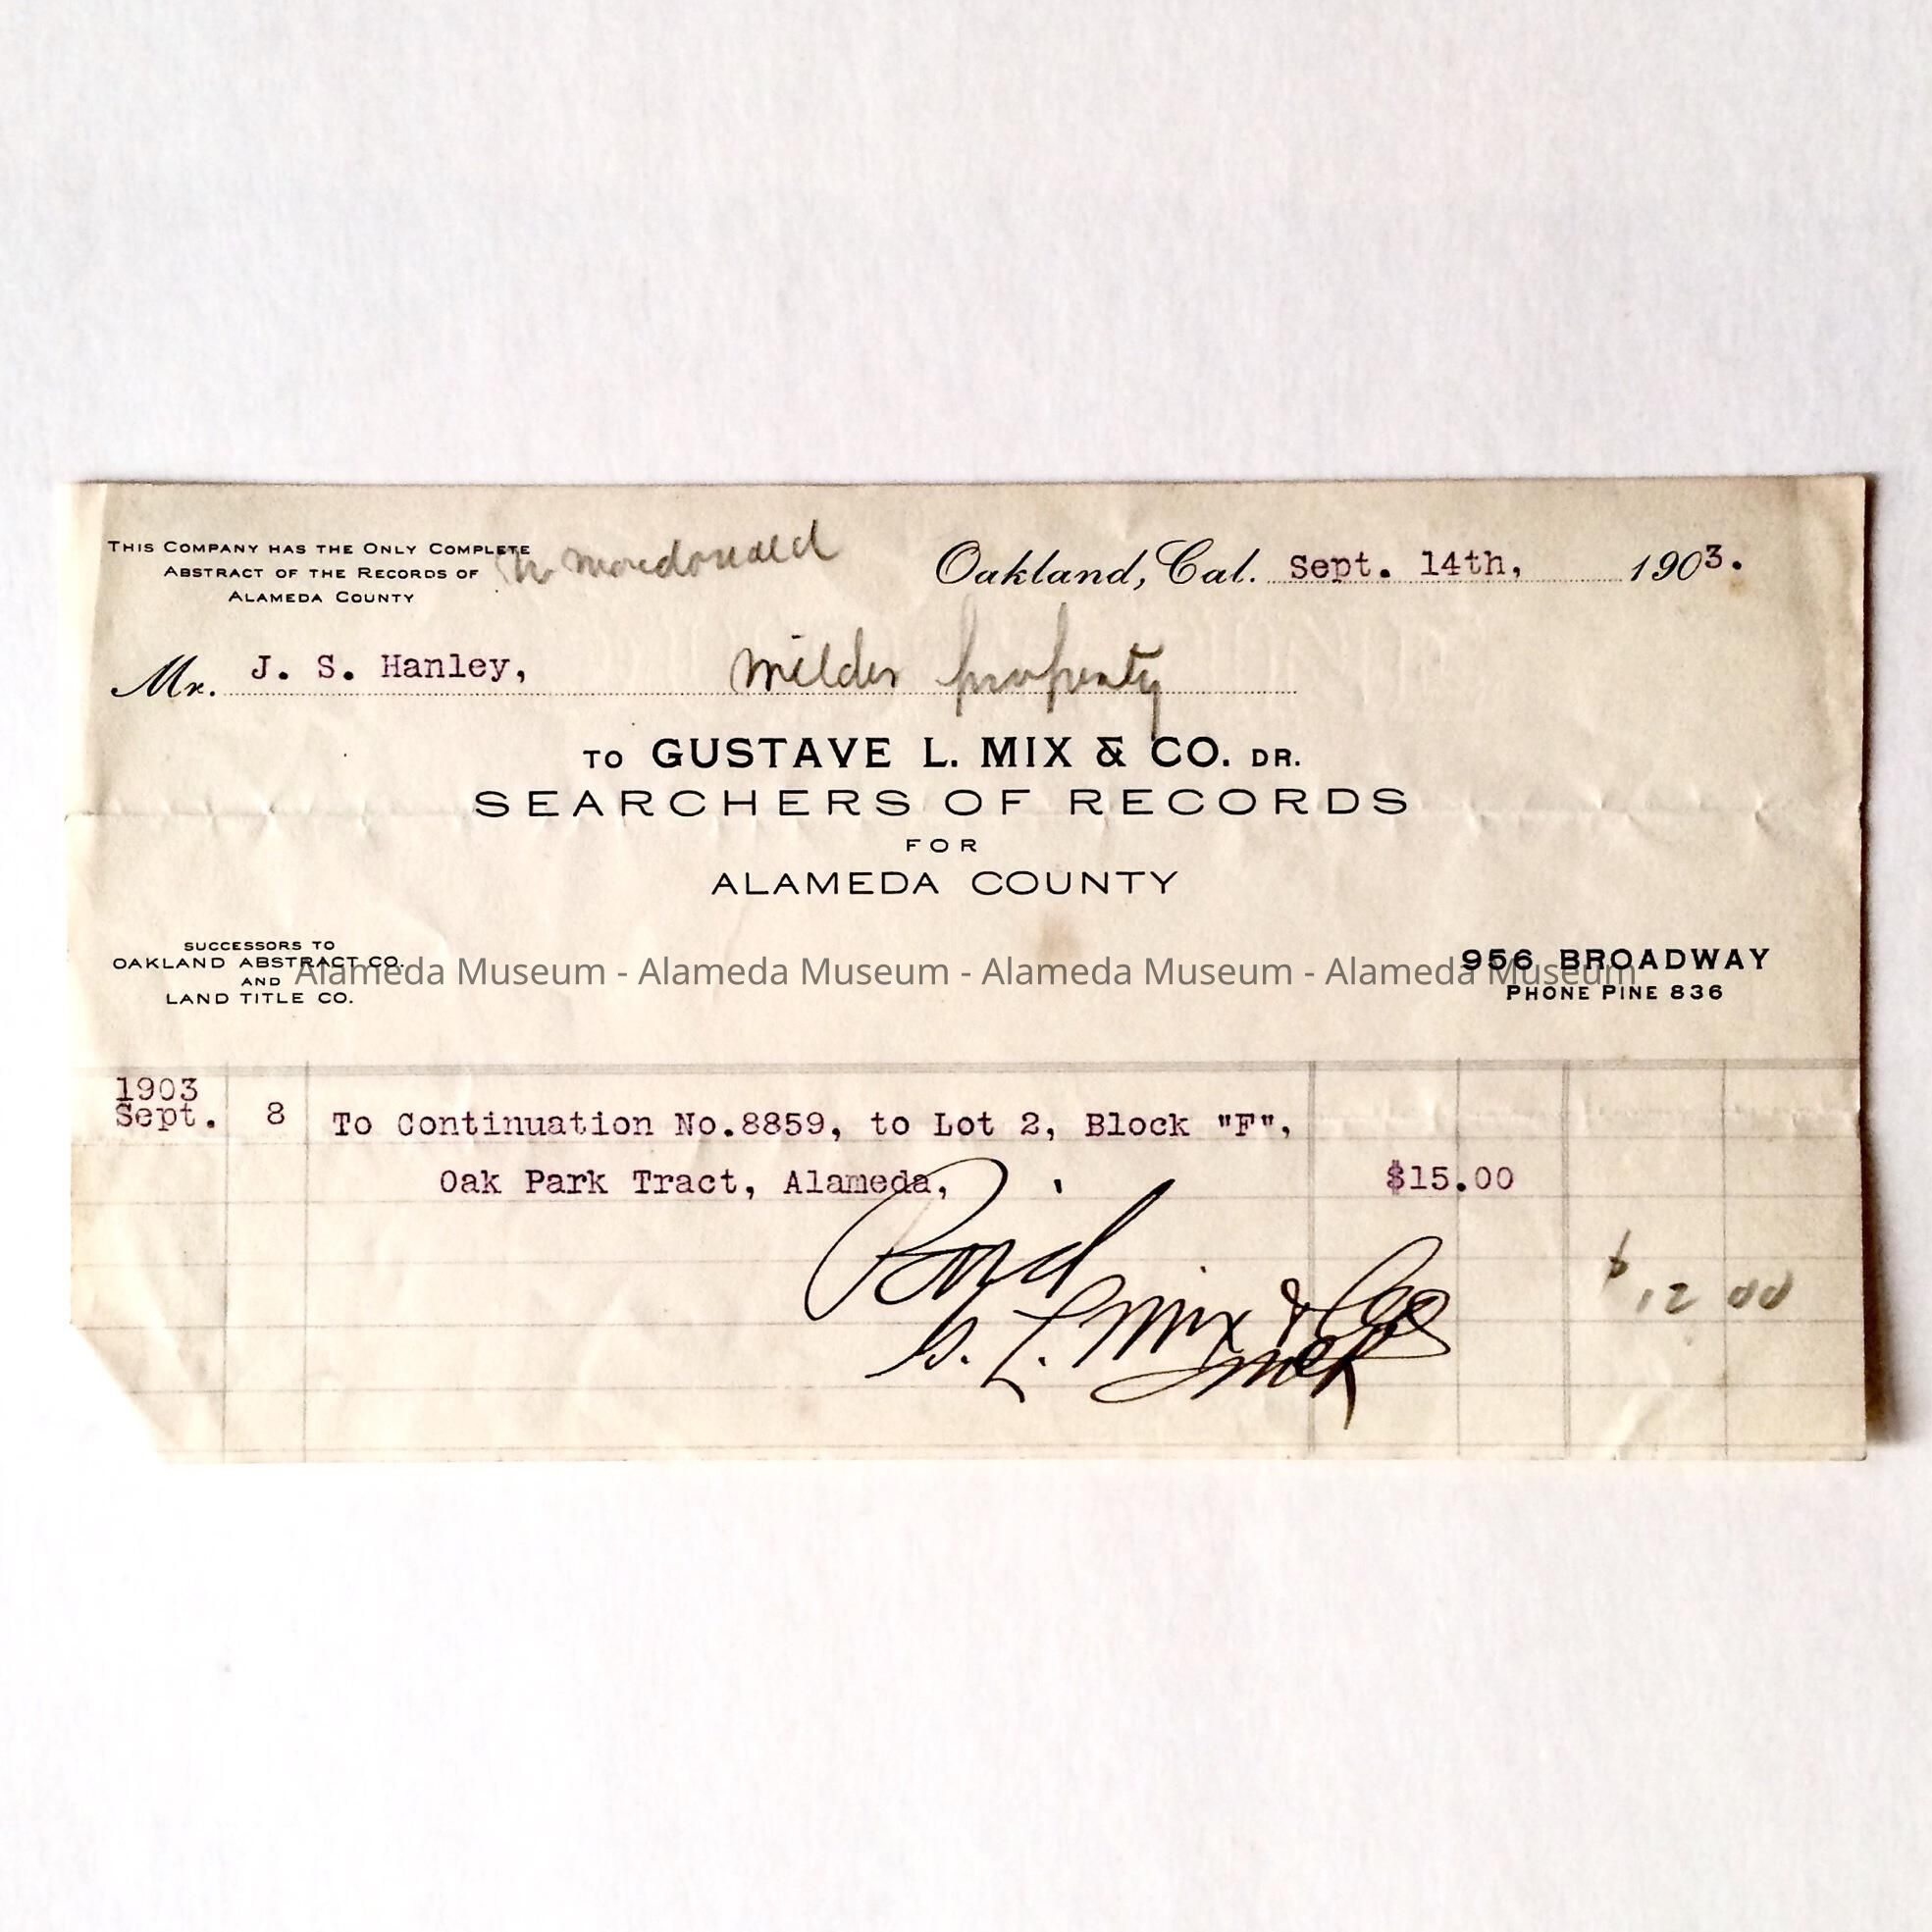 THIS COMPANY HAS THE ONLY COMPLETE
ABSTRACT OF THE RECORDS OF
ALAMEDA COUNTY
Oakland, Cal. Sept. 14th, 1903.
Mr. J. S. Hanley,
property
TO GUSTAVE L. MIX & CO. DR.
SEARCHERS OF RECORDS
FOR
ALAMEDA COUNTY
SUCCESSORS TO
OAKLAND ABSTRACT CO.
AND
LAND TITLE CO.
956 BROADWAY
PHONE PINE 836
Alameda Museum - Alameda Museum - Alameda Museum - Alameda Museum
1903
Sept. 8 To Continuation No.8859, to Lot 2, Block "F",
Oak Park Tract, Alameda, $15.00
Paid
G. L. Mix & Co
$12 00